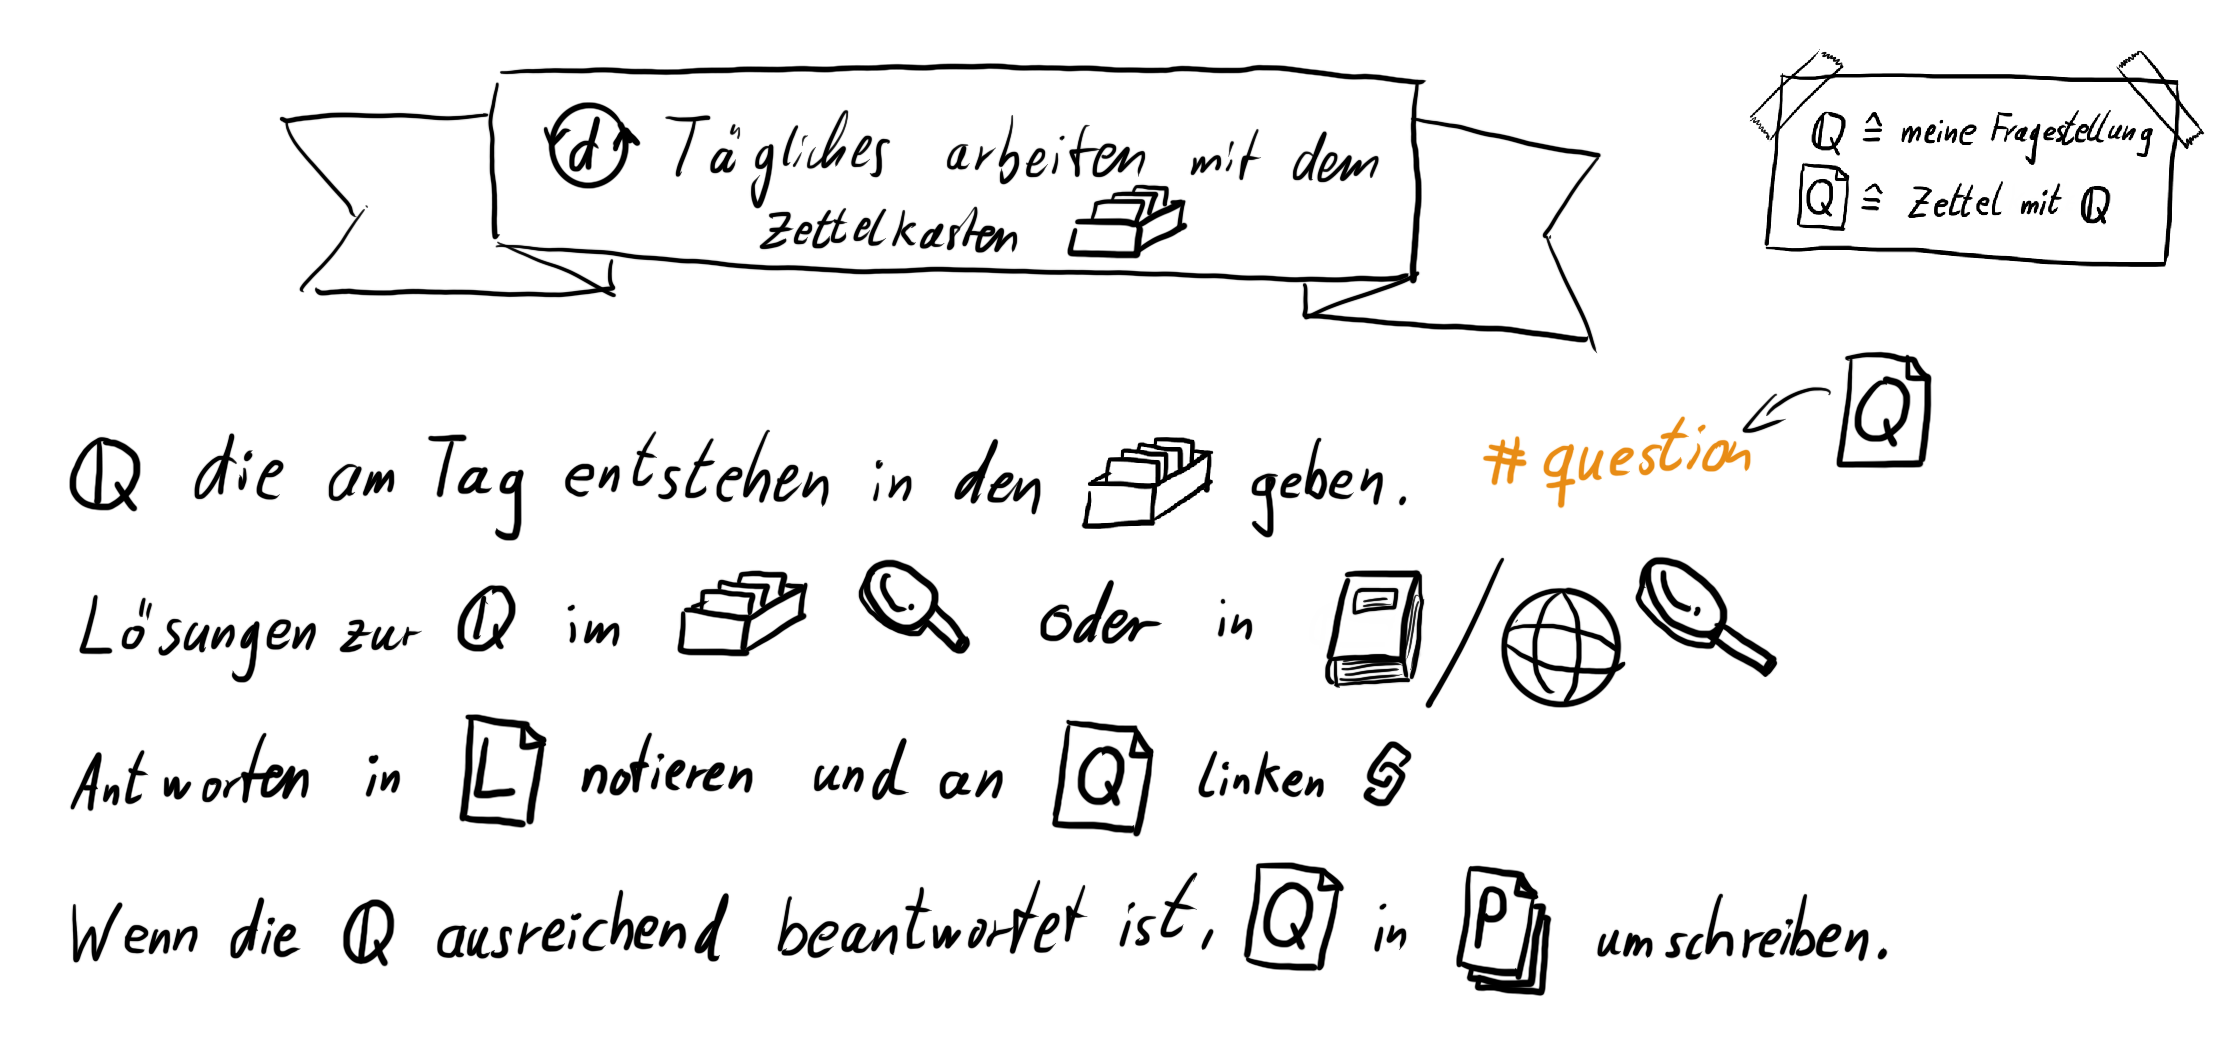 d Tägliches arbeiten mit dem
Zettelkasten
Q ≙ meine Fragestellung
Q ≙ Zettel mit Q
Q die am Tag entstehen in den geben. #question Q
Lösungen zur Q im oder in /
Antworten in L notieren und an Q linken
Wenn die Q ausreichend beantwortet ist, Q in P umschreiben.